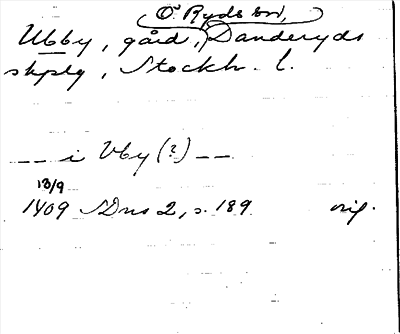 Ö. Ryds sn,
Ubby, gård, Danderyds
skplg, Stockh. l.
-- i Vby (?) --
13/9
1409 SDns 2, s. 189 orig.